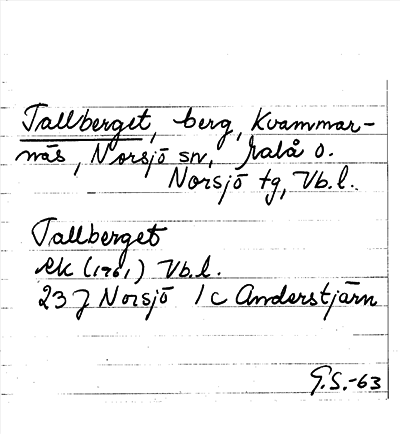 Tallberget, berg, Kvammar-
näs, Norsjö sn, Malå o.
Norsjö tg, Vb.l.
Tallberget
Rk (1961) Vb.l.
23 J Norsjö 1c Anderstjärn
G.S.-63